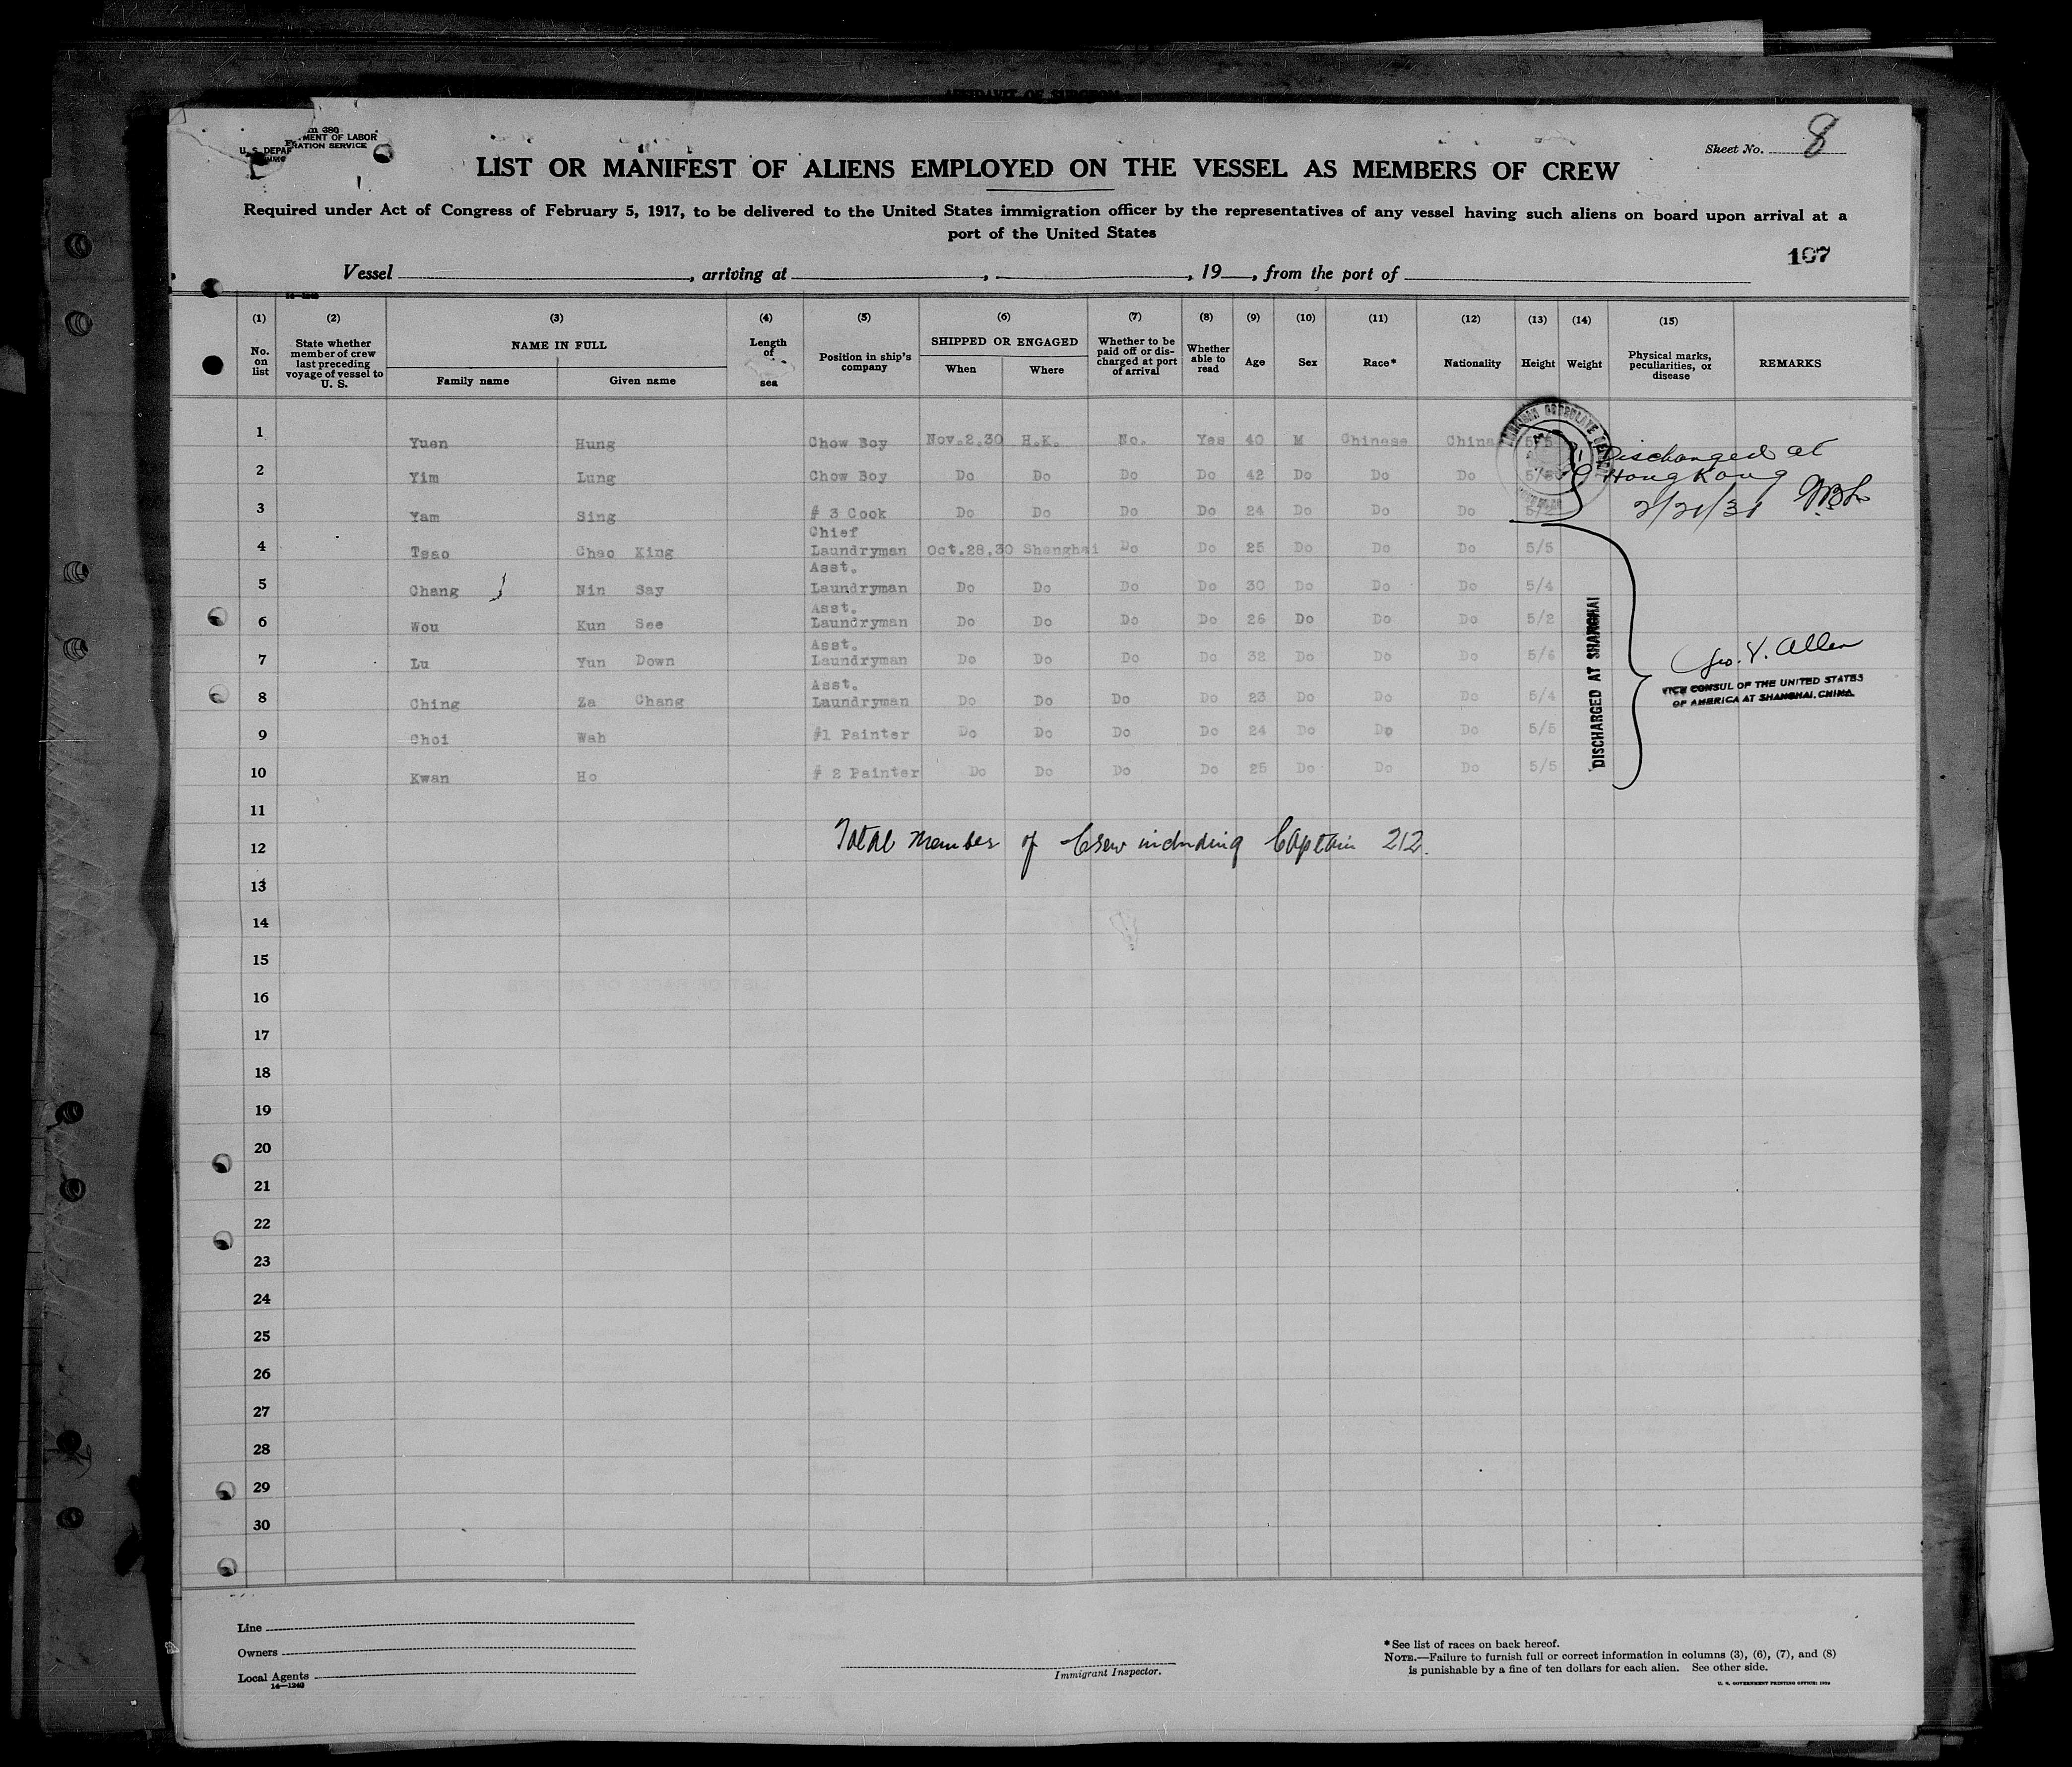 AFFIDAVIT OF SURGEON
U. S. DEPARTMENT OF LABOR
Sheet No. 8
LIST OR MANIFEST OF ALIENS EMPLOYED ON THE VESSEL AS MEMBERS OF CREW
Required under Act of Congress of February 5, 1917, to be delivered to the United States immigration officer by the representatives of any vessel having such aliens on board upon arrival at a
port of the United States
107
Vessel , arriving at , , 19 , from the port of
(1) (2) (3) (4) (5) (6) (7) (8) (9) (10) (11) (12) (13) (14) (15)
No. on list State whether member of crew last preceding voyage of vessel to U. S. NAME IN FULL Family name Given name Length of sea Position in ship's company SHIPPED OR ENGAGED When Where Whether to be paid off or discharged at port of arrival Whether able to read Age Sex Race* Nationality Height Weight Physical marks, peculiarities, or disease REMARKS
1 Yuen Hung Chow Boy Nov.2,30 H.K. No. Yes 40 M Chinese China 5/5
2 Yim Lung Chow Boy Do Do Do Do 42 Do Do Do
3 Yam Sing # 3 Cook Do Do Do Do 24 Do Do Do 5/2
Discharged at
Hong Kong
2/21/31
4 Tsao Chao King Chief Laundryman Oct.28,30 Shanghai Do Do 25 Do Do Do 5/5
5 Chang Nin Say Asst. Laundryman Do Do Do Do 30 Do Do Do 5/4
6 Wou Kun See Asst. Laundryman Do Do Do Do 26 Do Do Do 5/2
7 Lu Yun Down Asst. Laundryman Do Do Do Do 32 Do Do Do 5/6
8 Ching Za Chang Asst. Laundryman Do Do Do Do 23 Do Do Do 5/4
9 Choi Wah #1 Painter Do Do Do Do 24 Do Do Do 5/5
10 Kwan Ho # 2 Painter Do Do Do Do 25 Do Do Do 5/5
DISCHARGED AT SHANGHAI
Geo. V. Allen
VICE CONSUL OF THE UNITED STATES
OF AMERICA AT SHANGHAI, CHINA.
11
12 Total Member of Crew including Captain 212.
13
14
15
16
17
18
19
20
21
22
23
24
25
26
27
28
29
30
Line
Owners
Local Agents
14—1240
Immigrant Inspector.
*See list of races on back hereof.
NOTE.—Failure to furnish full or correct information in columns (3), (6), (7), and (8)
is punishable by a fine of ten dollars for each alien. See other side.
U. S. GOVERNMENT PRINTING OFFICE: